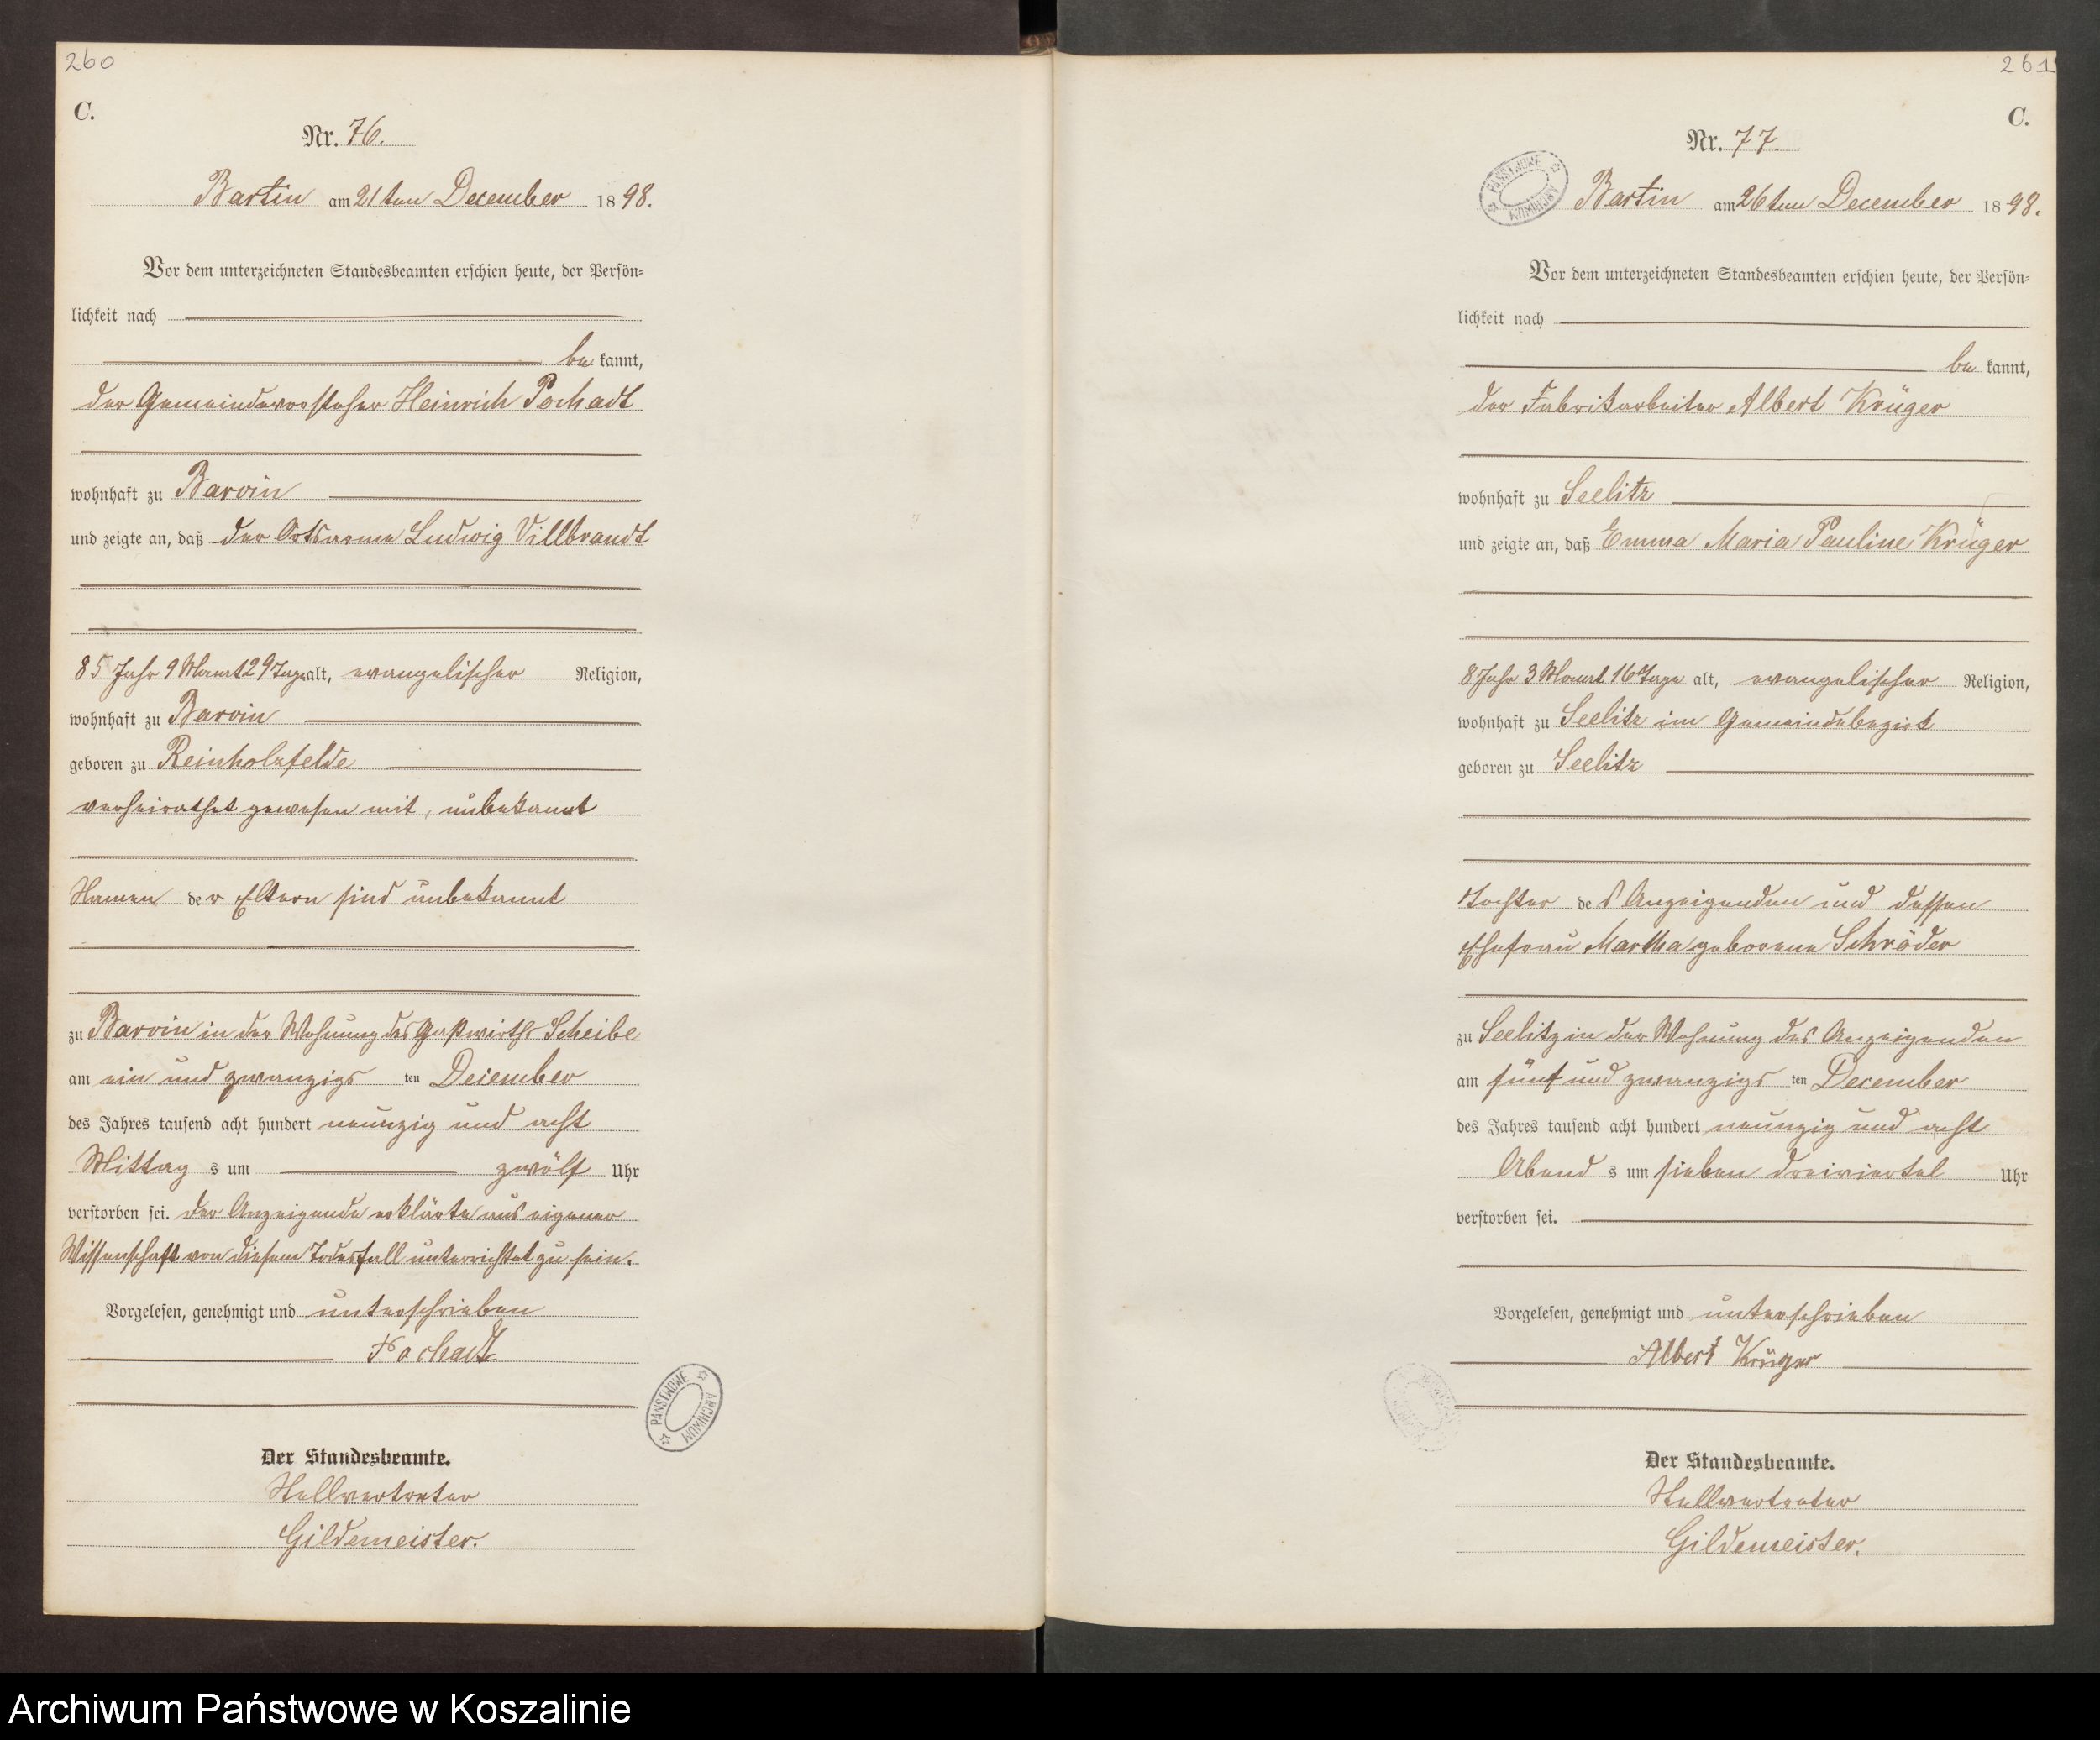 260
C.
Nr. 76.
Bartin am 21ten December 1898.
Vor dem unterzeichneten Standesbeamten erschien heute, der Persön-
lichkeit nach
be kannt,
der Gemeindevorsteher Heinrich Pochadt
wohnhaft zu Barvin
und zeigte an, daß der Ortsarme Ludwig Villbrandt
85 Jahr 9 Monat 29 Tage alt, evangelischer Religion,
wohnhaft zu Barvin
geboren zu Reinholzfelde
verheirathet gewesen mit, unbekannt
Namen der Eltern sind unbekannt
zu Barvin in der Wohnung des Gastwirths Scheibe
am ein und zwanzigs ten December
des Jahres tausend acht hundert neunzig und acht
Mittag s um zwölf Uhr
verstorben sei. Der Anzeigende erklärte aus eigener
Wissenschaft von diesem Todesfall unterrichtet zu sein.
Vorgelesen, genehmigt und unterschrieben
Pochadt
Der Standesbeamte.
Stellvertreter
Gildemeister.
PAŃSTWOWE ARCHIWUM
261
C.
Nr. 77.
PAŃSTWOWE ARCHIWUM
Bartin am 26ten December 1898.
Vor dem unterzeichneten Standesbeamten erschien heute, der Persön-
lichkeit nach
be kannt,
der Fabrikarbeiter Albert Krüger
wohnhaft zu Seelitz
und zeigte an, daß Emma Maria Pauline Krüger
8 Jahr 3 Monat 16 Tage alt, evangelischer Religion,
wohnhaft zu Seelitz im Gemeindebezirk
geboren zu Seelitz
Tochter des Anzeigenden und dessen
Ehefrau Martha geborene Schröder
zu Seelitz in der Wohnung des Anzeigenden
am fünf und zwanzigs ten December
des Jahres tausend acht hundert neunzig und acht
Abend s um sieben dreiviertel Uhr
verstorben sei.
Vorgelesen, genehmigt und unterschrieben
Albert Krüger
Der Standesbeamte.
Stellvertreter
Gildemeister.
Archiwum Państwowe w Koszalinie